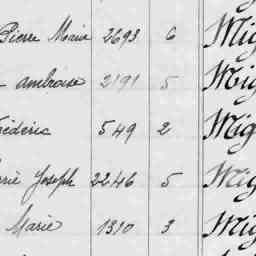 Pierre Marie 2693 6 Mig
ambroise 2191 5 Mig
rédéric 549 2 Mig
rie Joseph 2246 5 Mig
Marie 1310 3 Mig